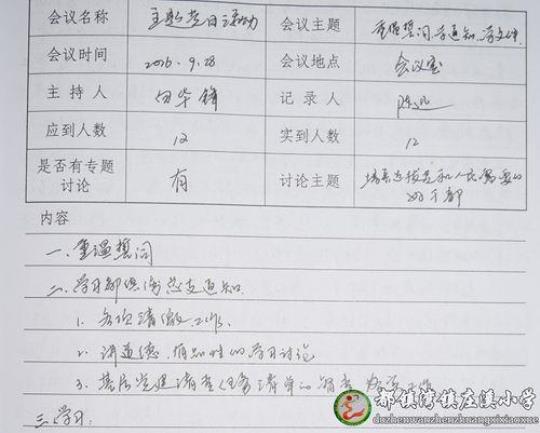 会议名称 主题党日活动 会议主题 重温誓词、学通知、学文件
会议时间 2016.9.28 会议地点 会议室
主持人 记录人
应到人数 12 实到人数 12
是否有专题讨论 有 讨论主题 培养选拔党和人民需要的好干部
内容
一、重温誓词
二、学习
1. 各项清缴工作、
2. 讲道德、有品行的学习讨论
3. 基层党建
三、学习:
都镇湾镇庄溪小学
dszhenwanzhenzhuangxixiaoxue